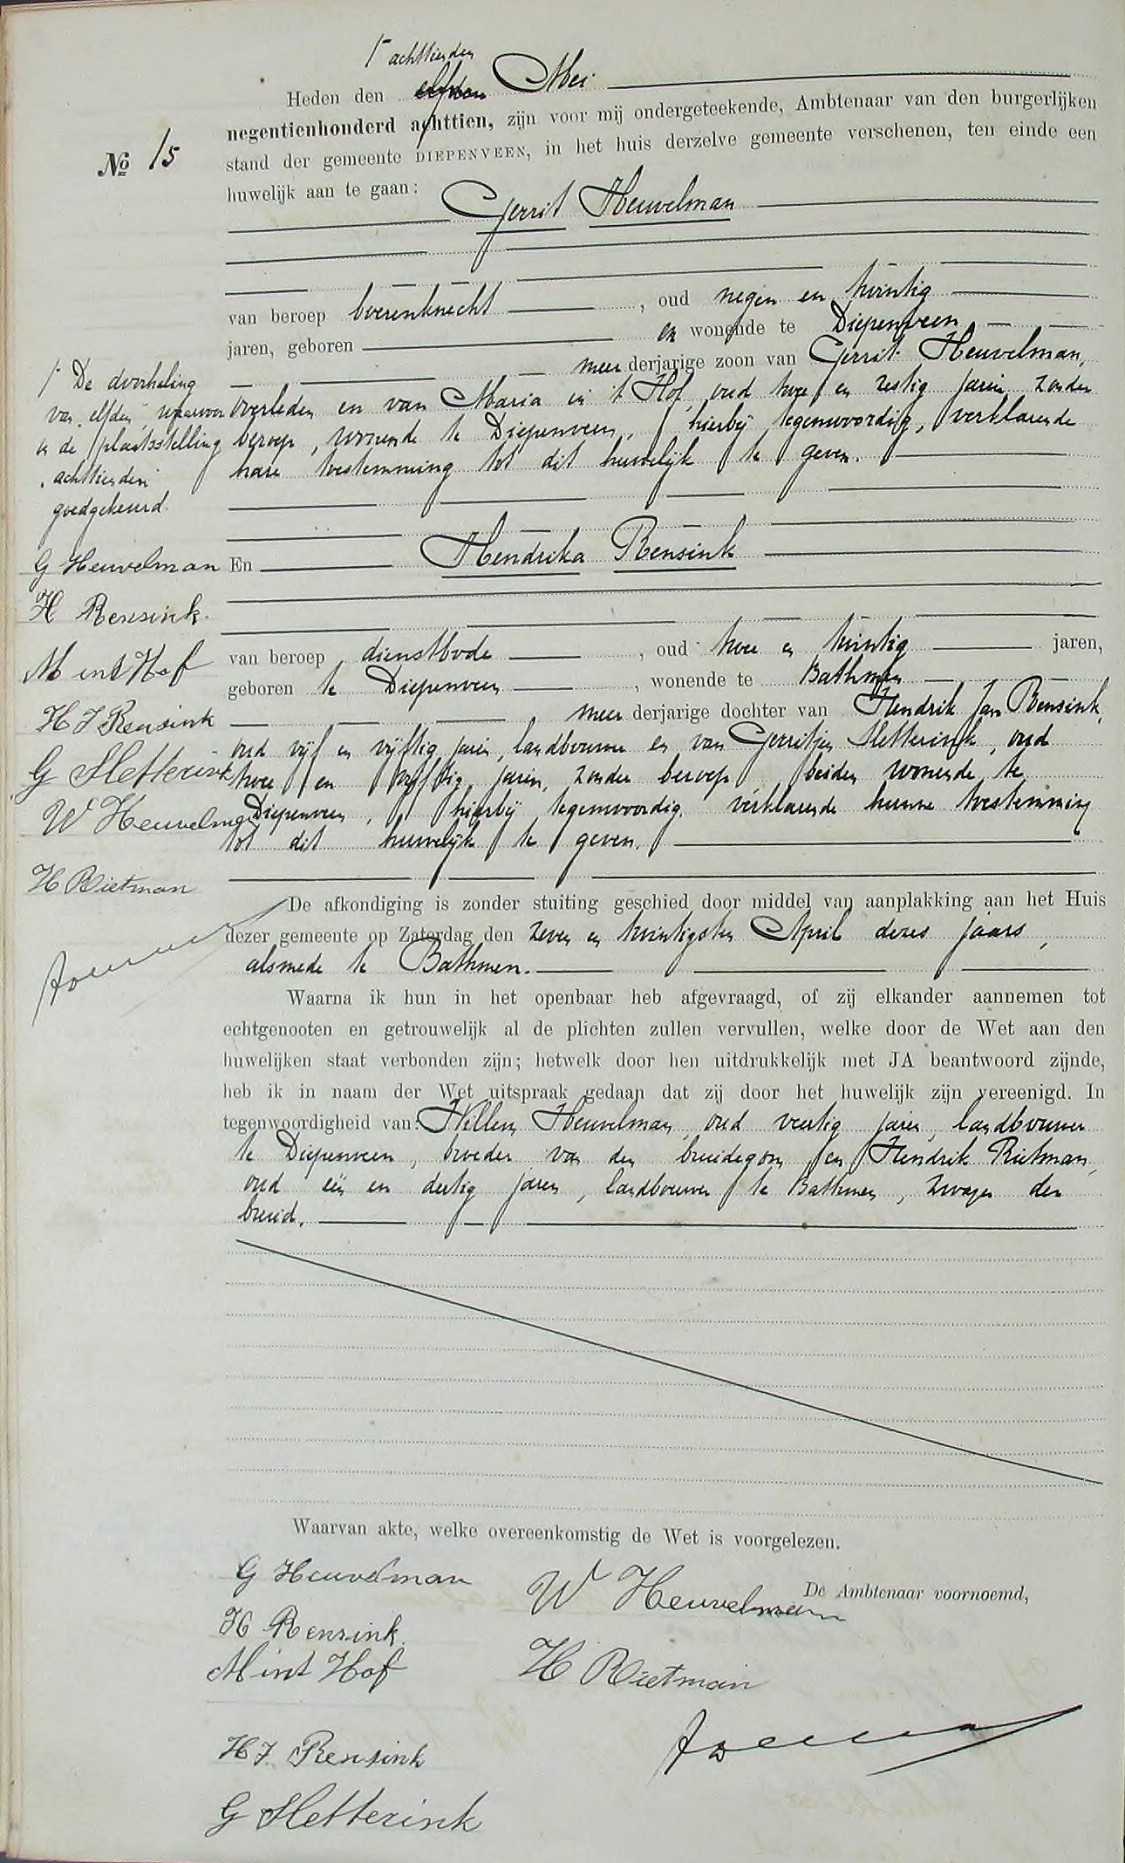 ⌈ achttienden
Heden den elfden Mei
negentienhonderd achttien, zijn voor mij ondergeteekende, Ambtenaar van den burgerlijken
No 15
stand der gemeente DIEPENVEEN, in het huis derzelve gemeente verschenen, ten einde een
huwelijk aan te gaan:
Gerrit Heuvelman
van beroep boerenknecht, oud negen en twintig
jaren, geboren en wonende te Diepenveen
meerderjarige zoon van Gerrit Heuvelman,
overleden en van Maria in 't Hof, oud twee en zestig jaren, zonder
beroep, wonende te Diepenveen, hierbij tegenwoordig, verklarende
hare toestemming tot dit huwelijk te geven.
⌈ De doorhaling
van "elfden", waarvoor
in de plaatsstelling
"achttienden
goedgekeurd.
G Heuvelman
H Rensink.
M int Hof
H J Rensink
G Sletterink
W Heuvelman
H Rietman
En Hendrika Rensink
van beroep dienstbode, oud twee en twintig jaren,
geboren te Diepenveen, wonende te Bathmen
meerderjarige dochter van Hendrik Jan Rensink,
oud vijf en vijftig jaren, landbouwer en van Gerritjen Sletterink, oud
twee en vijftig jaren, zonder beroep, beiden wonende te
Diepenveen, hierbij tegenwoordig, verklarende hunne toestemming
tot dit huwelijk te geven.
De afkondiging is zonder stuiting geschied door middel van aanplakking aan het Huis
dezer gemeente op Zaterdag den zeven en twintigsten April dezes jaars,
alsmede te Bathmen.
Waarna ik hun in het openbaar heb afgevraagd, of zij elkander aannemen tot
echtgenooten en getrouwelijk al de plichten zullen vervullen, welke door de Wet aan den
huwelijken staat verbonden zijn; hetwelk door hen uitdrukkelijk met JA beantwoord zijnde,
heb ik in naam der Wet uitspraak gedaan dat zij door het huwelijk zijn vereenigd. In
tegenwoordigheid van: Willem Heuvelman, oud veertig jaren, landbouwer
te Diepenveen, broeder van den bruidegom, en Hendrik Rietman,
oud één en dertig jaren, landbouwer te Bathmen, zwager der
bruid.
Waarvan akte, welke overeenkomstig de Wet is voorgelezen.
De Ambtenaar voornoemd,
G Heuvelman
W Heuvelman
H Rensink.
M int Hof
H Rietman
H J. Rensink
G Sletterink